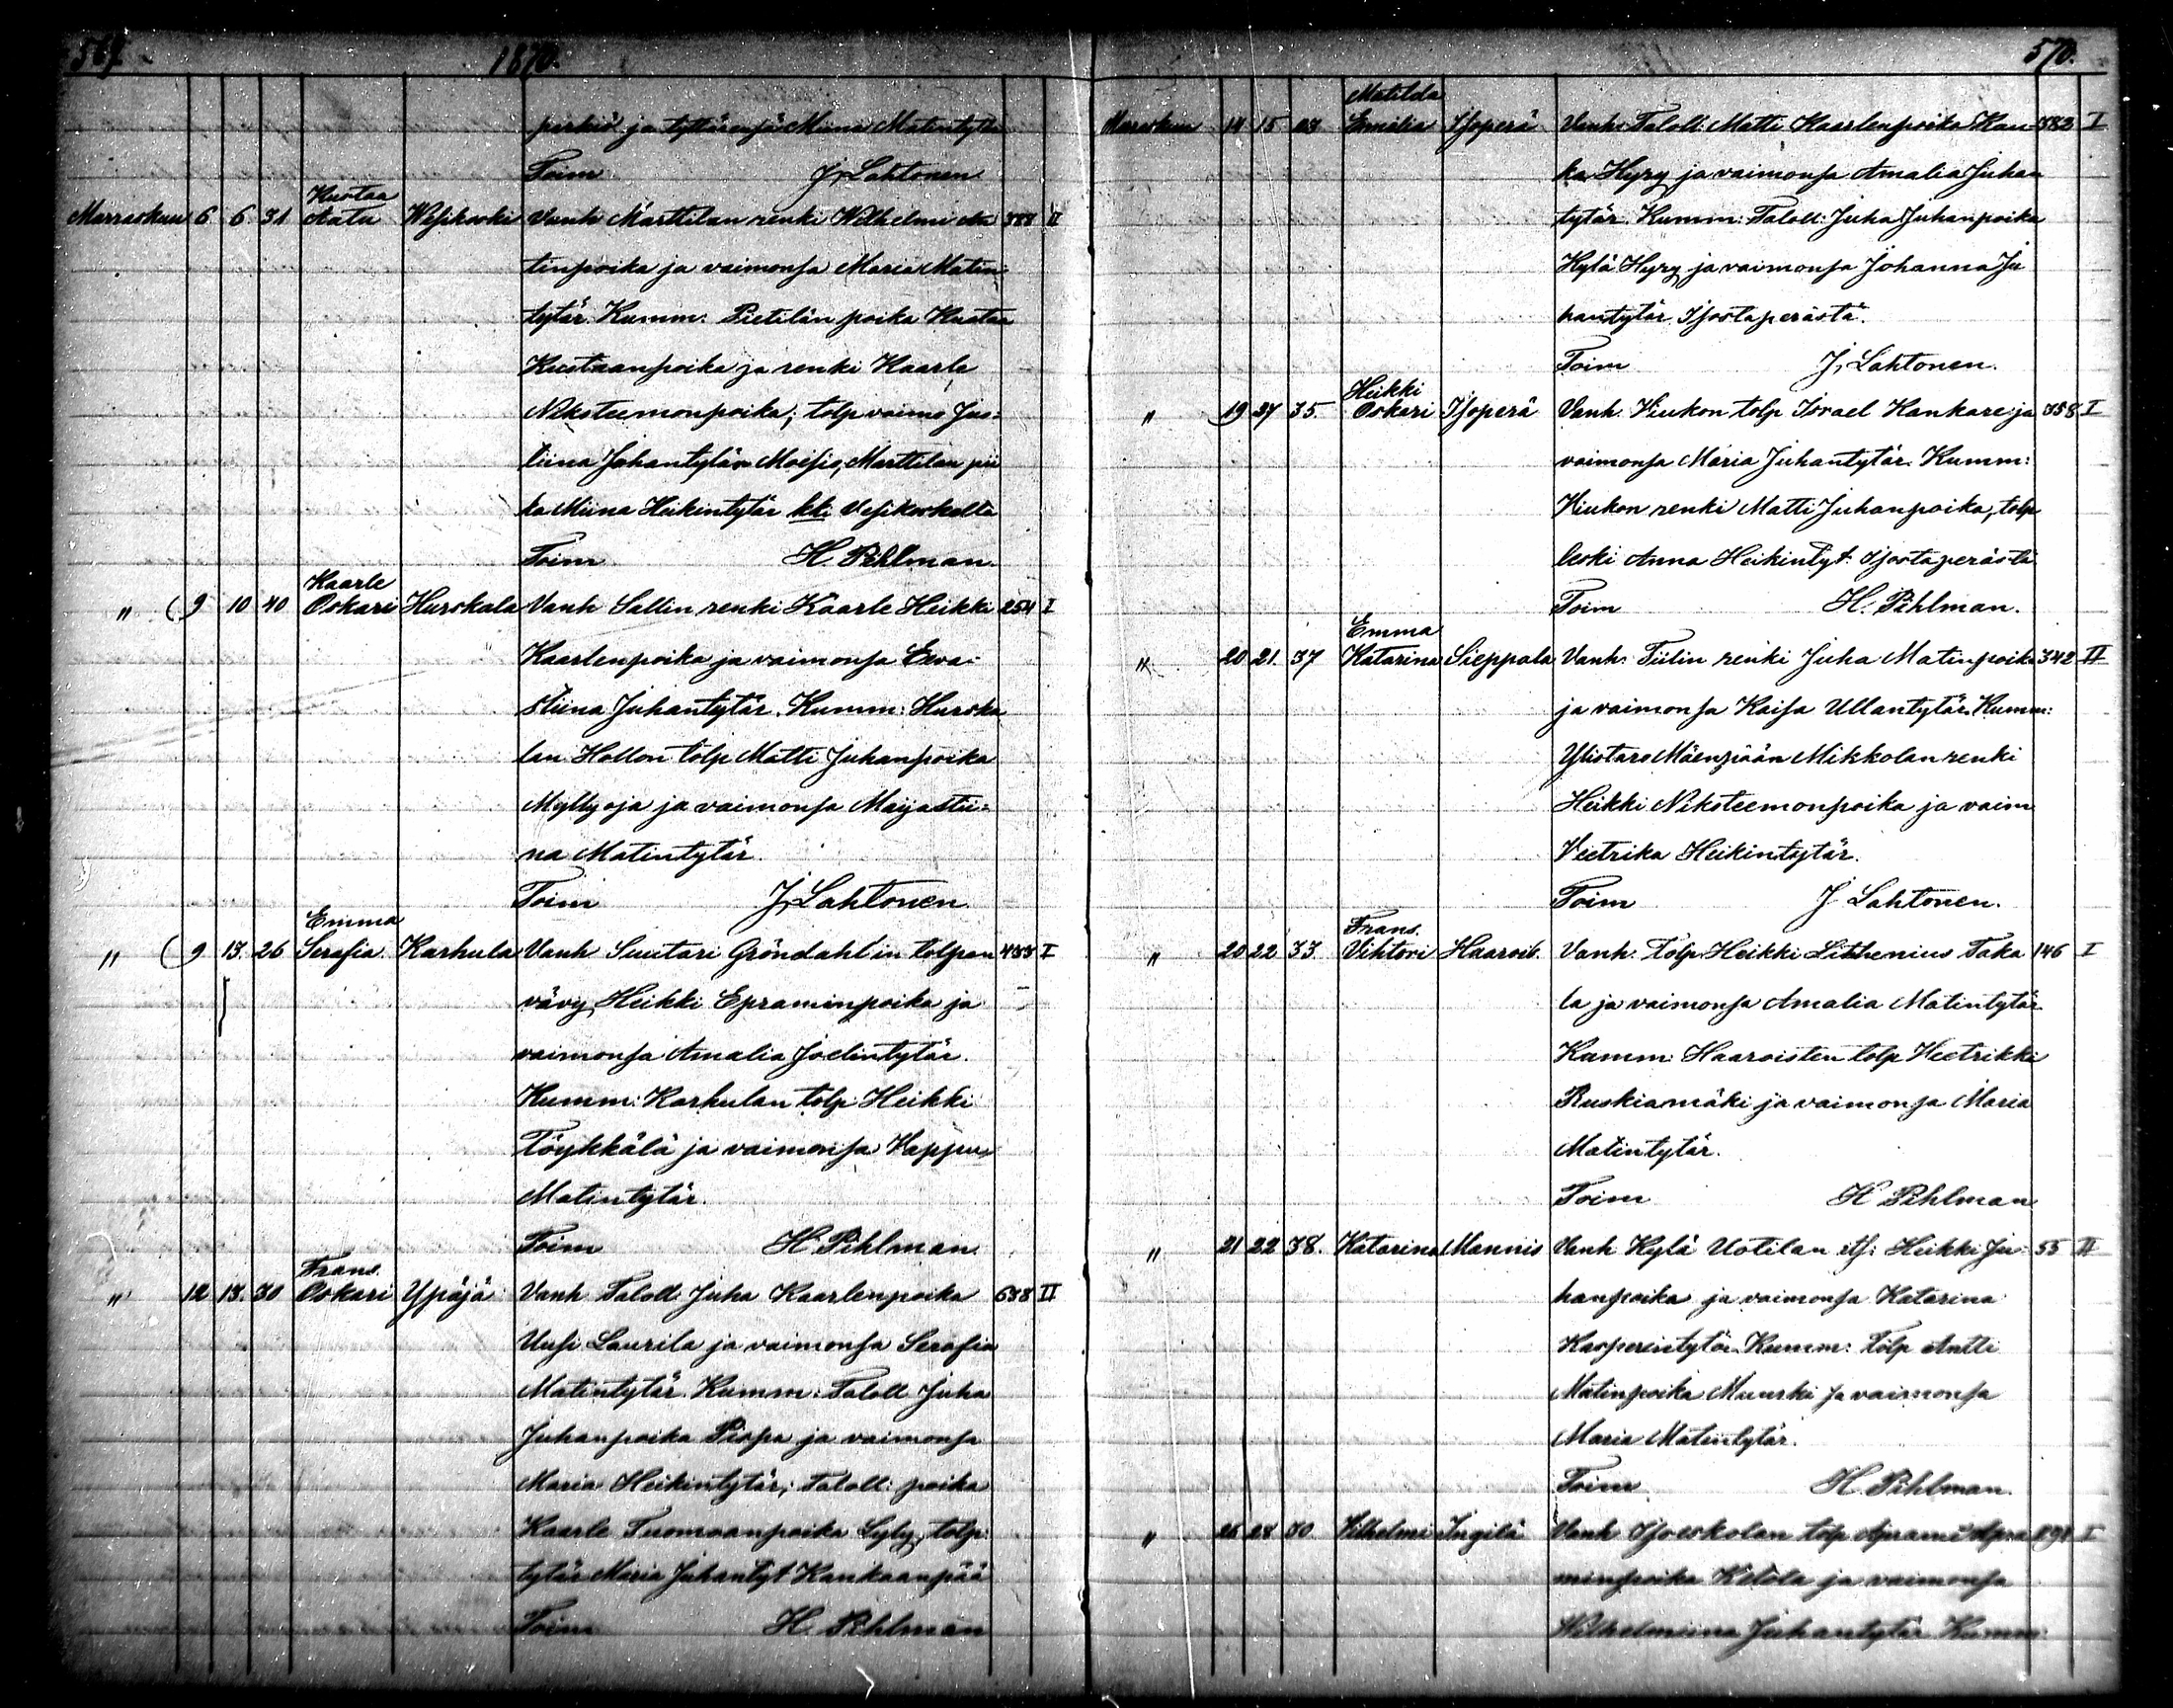 569. 1870.
perkiö ja tyttärensä Miina Matintytt
Toim J. Lahtonen
Kustaa
Marraskuu 6 6 31 Aatu Wesikoski Vanh Marttilan renki Wilhelmi Ma 388 II
tinpoika ja vaimonsa Maria Matin
tytär. Kumm: Pietilän poika Kustaa
Kustaanpoika ja renki Kaarle
Niksteemonpoika; tolp vaimo Jus-
tiina Juhantytär Moisio, Marttilan pii
ka Miina Heikintytär kki Vesikoskelta
Toim H Pihlman.
Kaarle
" 9 10 40 Oskari Hurskala Vanh Sallin renki Kaarle Heikki 254 I
Kaarlenpoika ja vaimonsa Eeva-
Stiina Juhantytär. Kumm: Hurska
lan Hollon tolp Matti Juhanpoika
Myllyoja ja vaimonsa Maijastii-
na Matintytär.
Toim J. Lahtonen.
Emma
" 9 13. 26 Serafia Karhula Vanh Suutari Gröndahl'in tolpan 453 I
vävy Heikki Epraminpoika ja
vaimonsa Amalia Joelintytär.
Kumm: Karhulan tolp: Heikki
Töykkälä ja vaimonsa Vappu
Matintytär.
Toim H Pihlman.
Frans.
" 12 13. 30 Oskari Ypäjä Vanh Taloll Juha Kaarlenpoika 638 II
Uusi Laurila ja vaimonsa Serafia
Matintytär. Kumm: Taloll Juha
Juhanpoika Pispa ja vaimonsa
Maria Heikintytär; Taloll: poika
Kaarle Tuomaanpoika Syty, tolp:
tytär Maria Juhantyt Kankaanpää
Toim H Pihlman
570.
Matilda
Marraskuu 14 15 Emilia Isoperä Vanh. Taloll: Matti Kaarlenpoika Kau 583 I
ka Hyry ja vaimonsa Amalia Juhan
tytär. Kumm: Taloll: Juha Juhanpoika
Kylä Hyry ja vaimonsa Johanna Ju
hantytär Isostaperästä.
Toim J. Lahtonen.
Heikki
" 19 27 35. Oskari Isoperä Vanh. Kiukon tolp Israel Kankare ja 358 I
vaimonsa Maria Juhantytär. Kumm:
Kiukon renki Matti Juhanpoika, tolp
leski Anna Heikintyt: Isostaperästä
Toim H. Pihlman.
Emma
" 20 21. 37 Katarina Sieppala Vanh. Tiilin renki Juha Matinpoika 342 II
ja vaimonsa Kaisa Ullantytär. Kumm:
Ylistaro Mäenpään Mikkolan renki
Heikki Niksteemonpoika ja vaim
Veetrika Heikintytär.
Toim J Lahtonen.
Frans.
" 20 22 33. Vihtori Haarois. Vanh. Tolp Heikki Lithenius Taka 146 I
la ja vaimonsa Amalia Matintytär
Kumm: Haaroisten tolp Veetrikki
Ruskiamäki ja vaimonsa Maria
Matintytär.
Toim H Pihlman
" 21 22 38. Katarina Mannis Vanh Kylä Uotilan Heikki Ju- 55 II
hanpoika ja vaimonsa Katarina
Kasperintytär. Kumm: Tolp Antti
Matinpoika Muurki ja vaimonsa
Maria Matintytär.
Toim H. Pihlman.
" 26 28 30. Vilhelmi Ingilä Vanh tolp Aprami Apra I
minpoika Ketola ja vaimonsa
Wilhelmiina Juhantytär. Kumm: